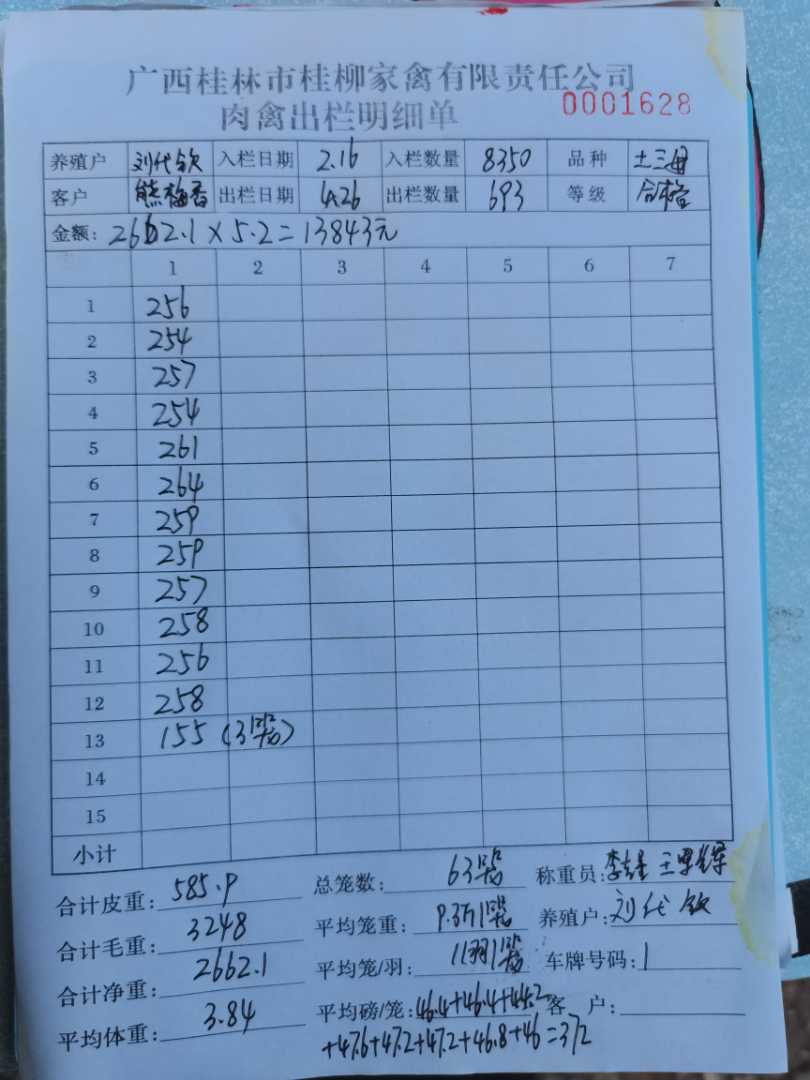 广西桂林市桂柳家禽有限责任公司
肉禽出栏明细单 0001628
养殖户 刘代钦 入栏日期 2.16 入栏数量 8350 品种 土三母
客户 熊梅香 出栏日期 4.26 出栏数量 693 等级 合格
金额: 2662.1×5.2=13843元
1 2 3 4 5 6 7
1 256
2 254
3 257
4 254
5 261
6 264
7 259
8 259
9 257
10 258
11 256
12 258
13 155 (3笼)
14
15
小计
合计皮重: 585.9 总笼数: 63笼 称重员:
合计毛重: 3248 平均笼重: 9.3斤/笼 养殖户: 刘代钦
合计净重: 2662.1 平均笼/羽: 11羽/笼 车牌号码: 1
平均体重: 3.84 平均磅/笼: 46.4+46.4+44.2 客户:
+47.6+47.2+47.2+46.8+46=372